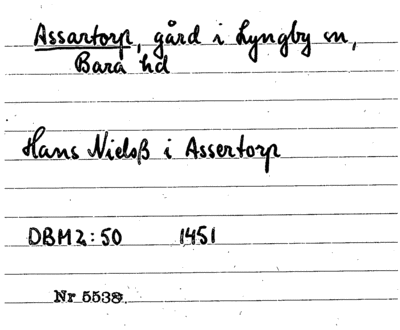 Assartorp, gård i Lyngby sn,
Bara hd
Hans Nielsß i Assertorp
DBM2:50 1451
Nr 5538